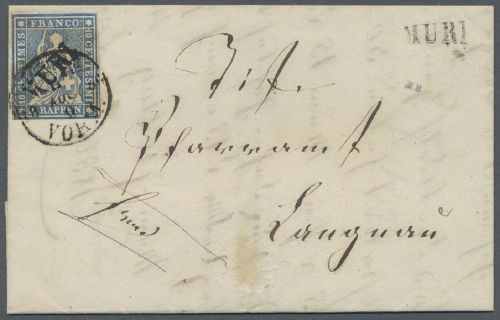 FRANCO
10 CENTIMES
10 CENTESIMI
RAPPEN
MURI
VORM.
MURI
Pfarramt
Langnau